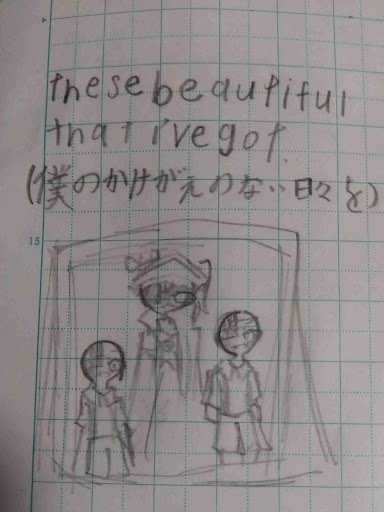 these beautiful
that i've got
(僕のかけがえのない日々を)
15